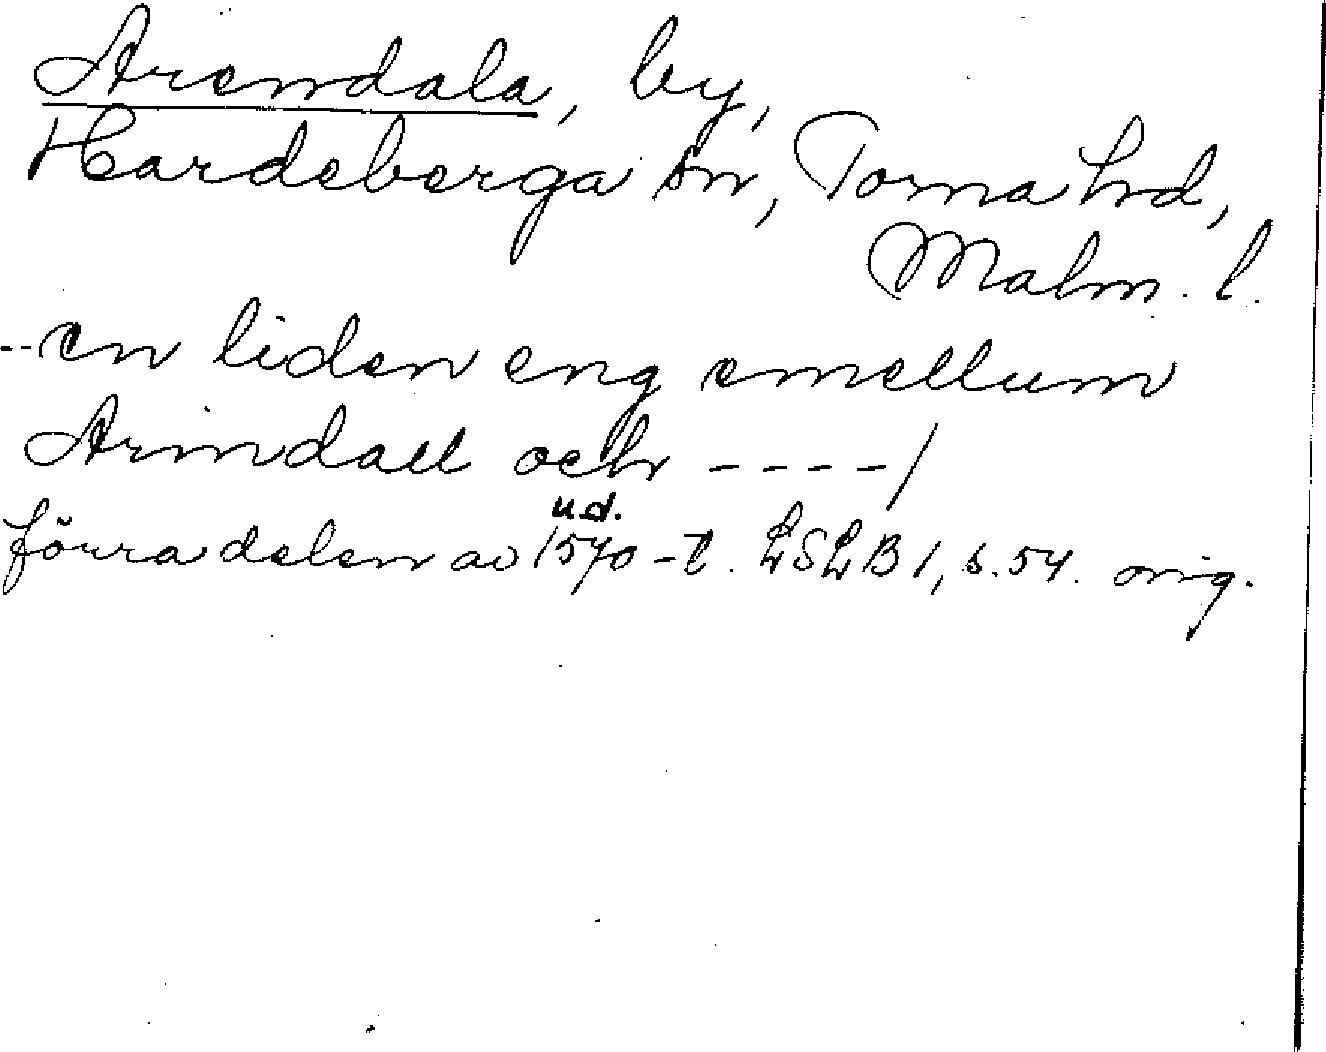 Arendala, by,
Hardeberga sn, Torna hrd,
Malm. l.
--en liden eng emellum
Arindall och ----/
u.d.
förra delen av 1570-t. LSLB 1, s. 54. orig.